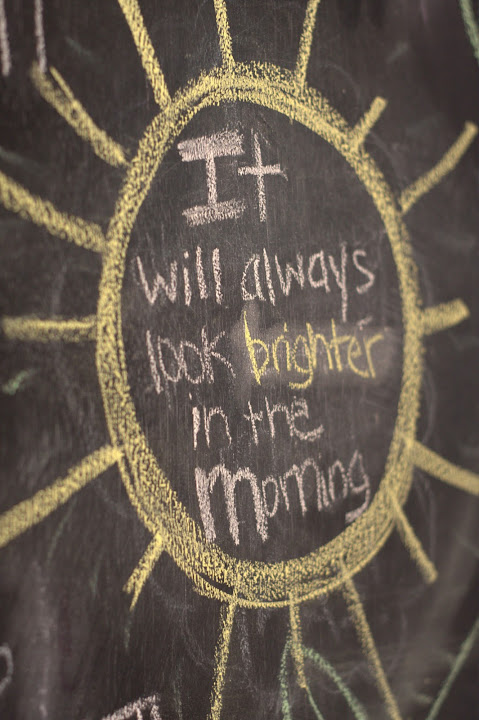 It
will always
look brighter
in the
morning